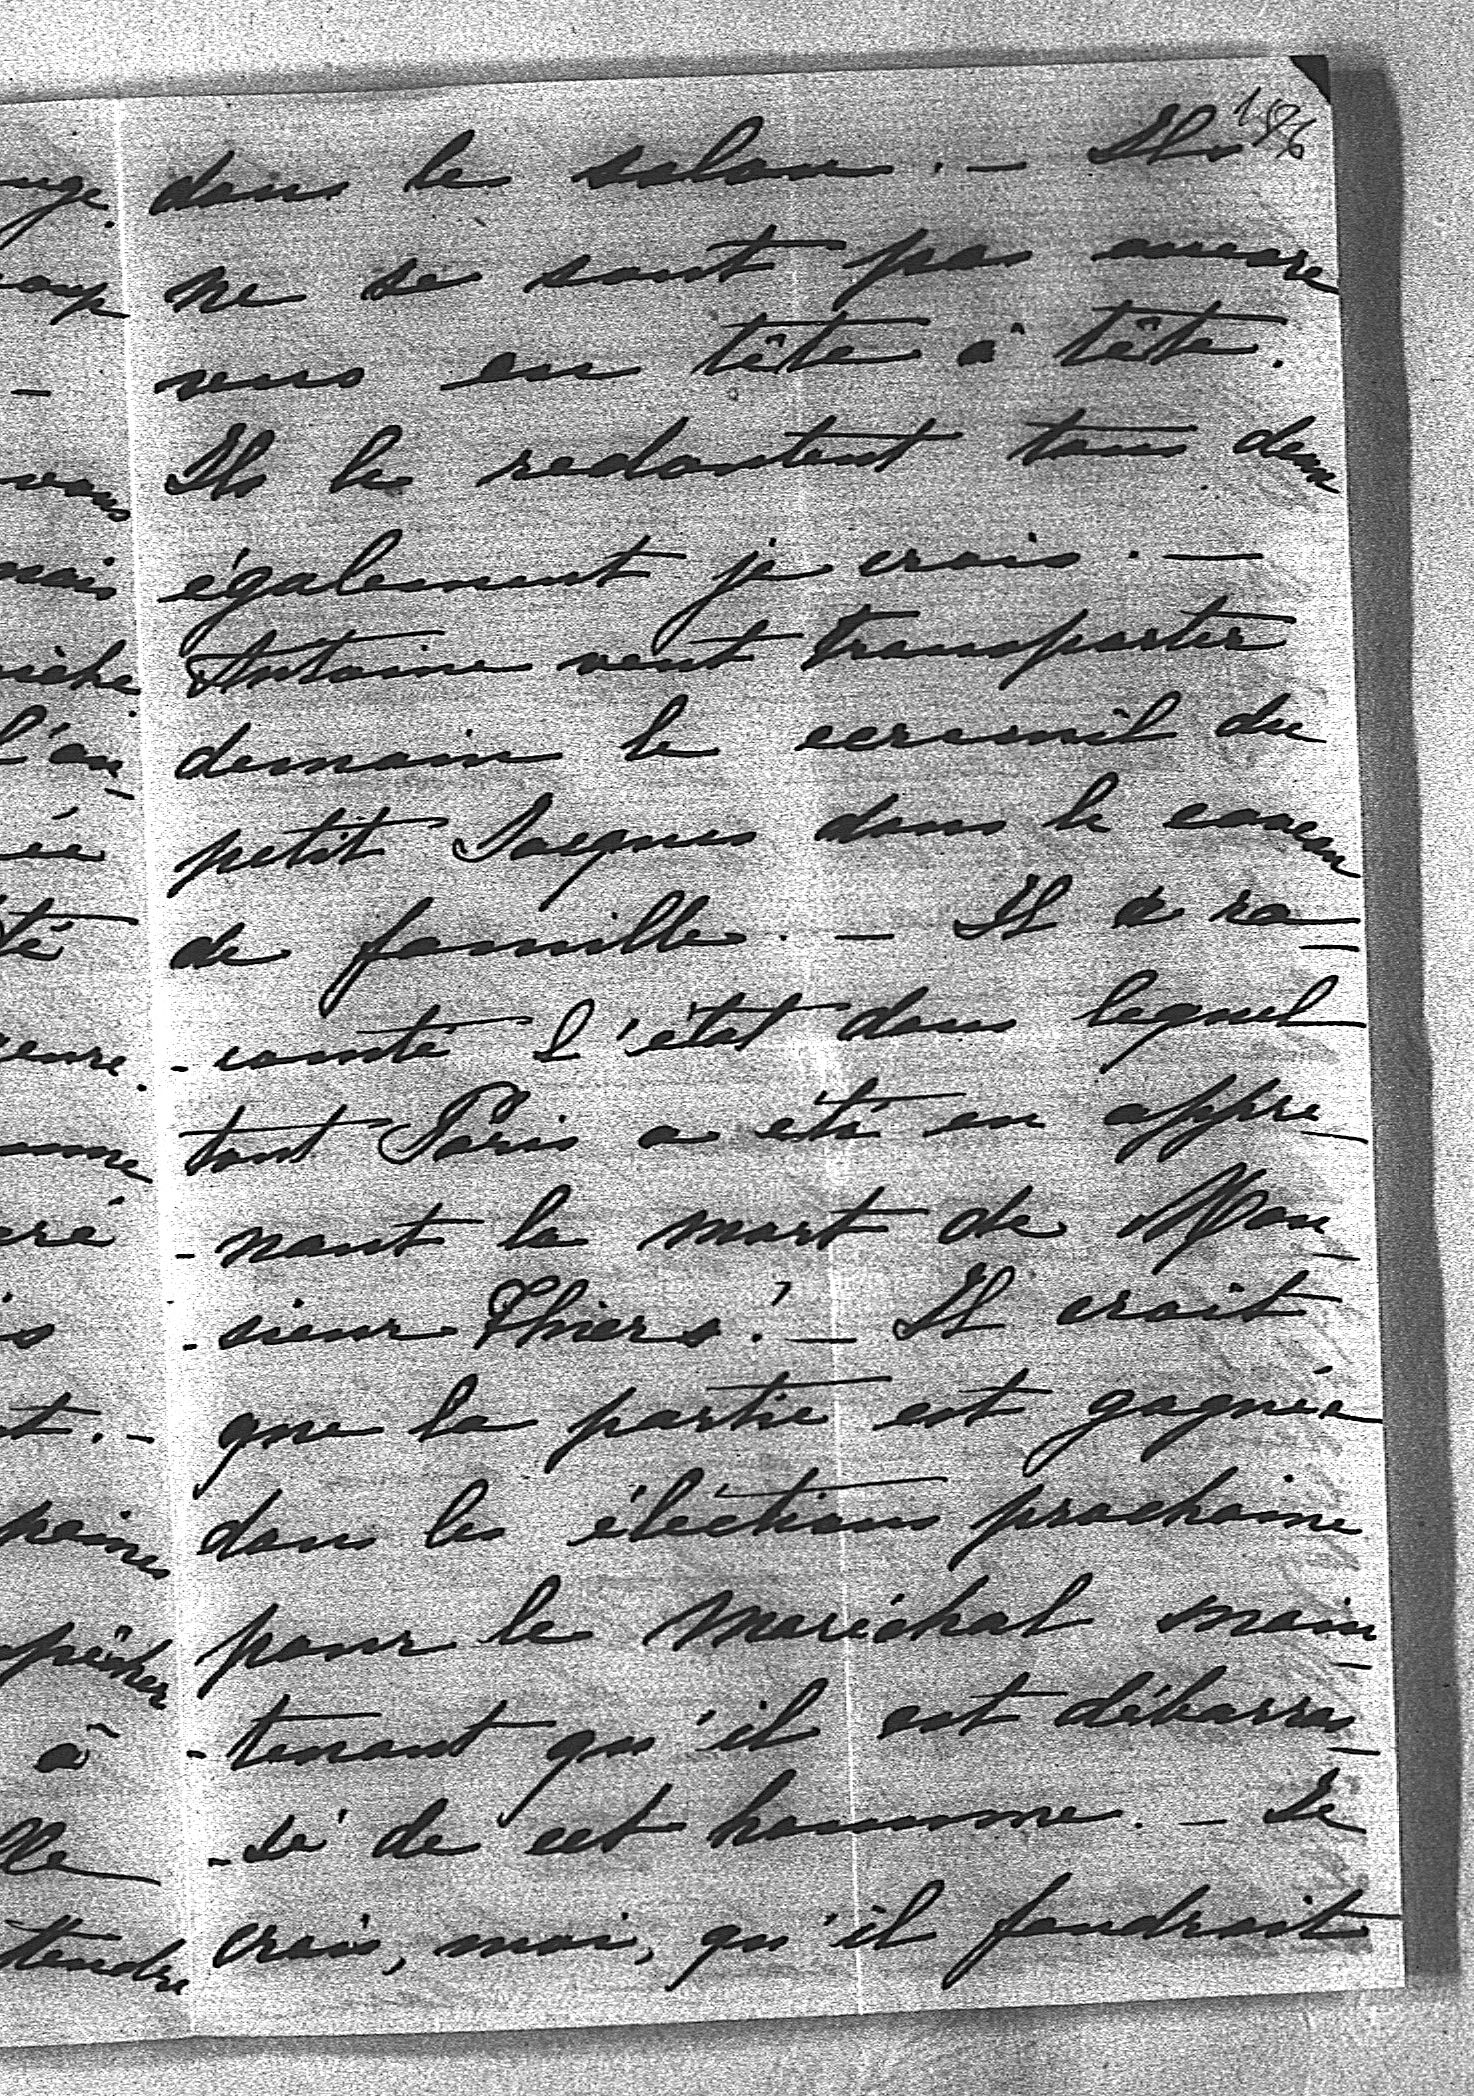 dans le salon. – Ils
ne se sont pas encore
vus en tête à tête.
Ils le redoutent tous deux
également je crois. –
Antoine veut transporter
demain le cercueil du
petit Jacques dans le caveau
de famille. – Il a ra-
-conté l'état dans lequel
tout Paris a été en appre-
-nant la mort de Mon-
-sieur Thiers! – Il croit
que la partie est gagnée
dans les éléctions prochaines
pour le Maréchal main-
-tenant qu'il est débarras-
-sé de cet homme. – Je
crois, moi, qu'il faudrait